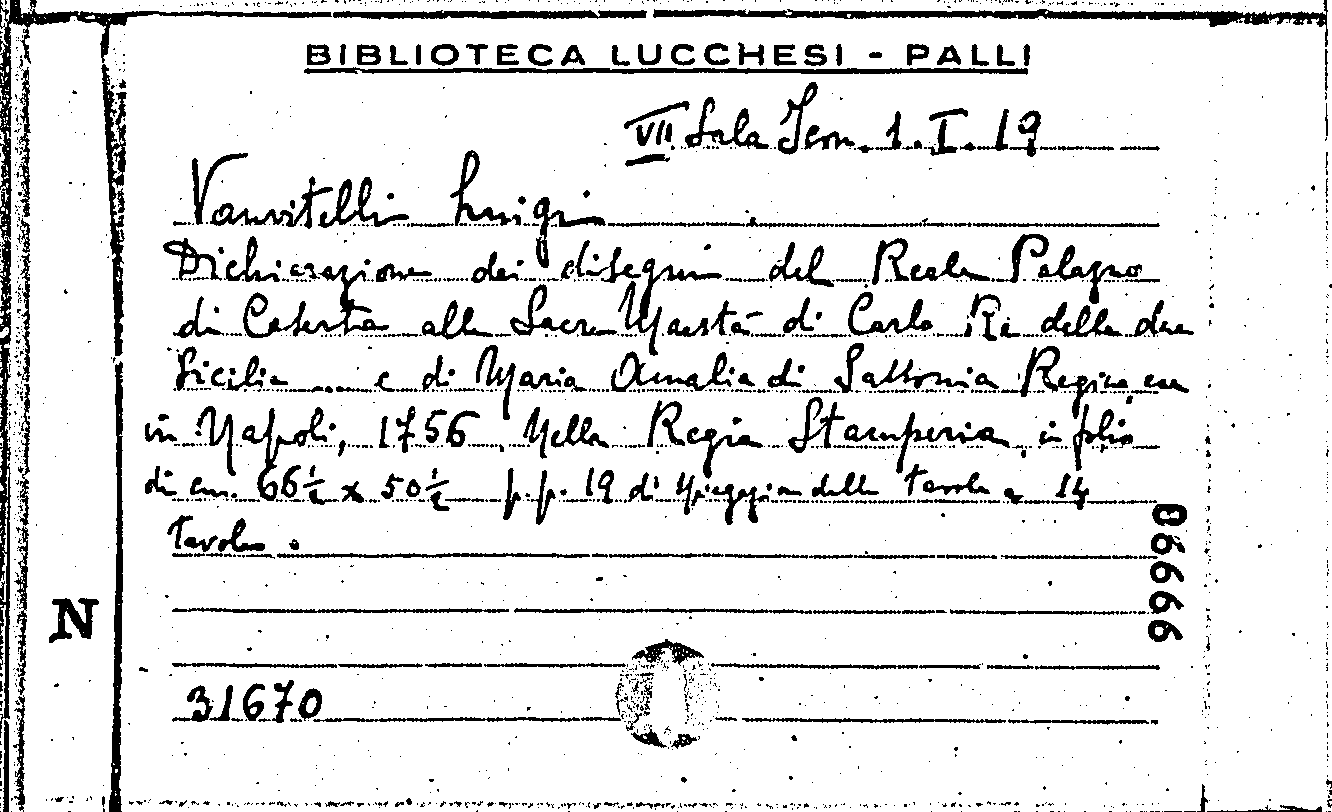 BIBLIOTECA LUCCHESI - PALLI
VII Sala Scm. 1. I. 19
Vanvitelli Luigi
Dichiarazione dei disegni del Reale Palazzo
di Caserta alla Sacra Maestà di Carlo Re delle due
Sicilie .... e di Maria Amalia di Sassonia Regina ecc
in Napoli, 1756. Nella Regia Stamperia, in folio
di cm. 66½ x 50½ p.p. 19 di spiegazione delle tavole e 14
tavole.
06666
N
31670